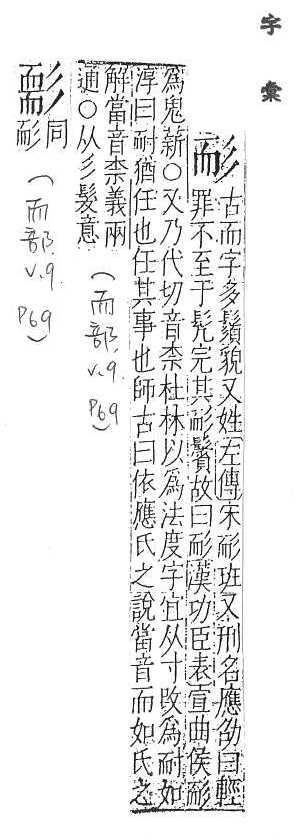 字彙
耏 古而字多鬚貌又姓左傳宋耏班又刑名應劭曰輕
罪不至于髡完其耏鬢故曰耏漢功臣表宣曲侯耏
為鬼薪○又乃代切音柰杜林以為法度字宜从寸改為耐如
淳曰耐猶任也任其事也師古曰依應氏之說當音而如氏之
解當音柰義兩
通○从彡髮意
(而部 v.9. p69)
同
耏
(而部 v.9. p69)